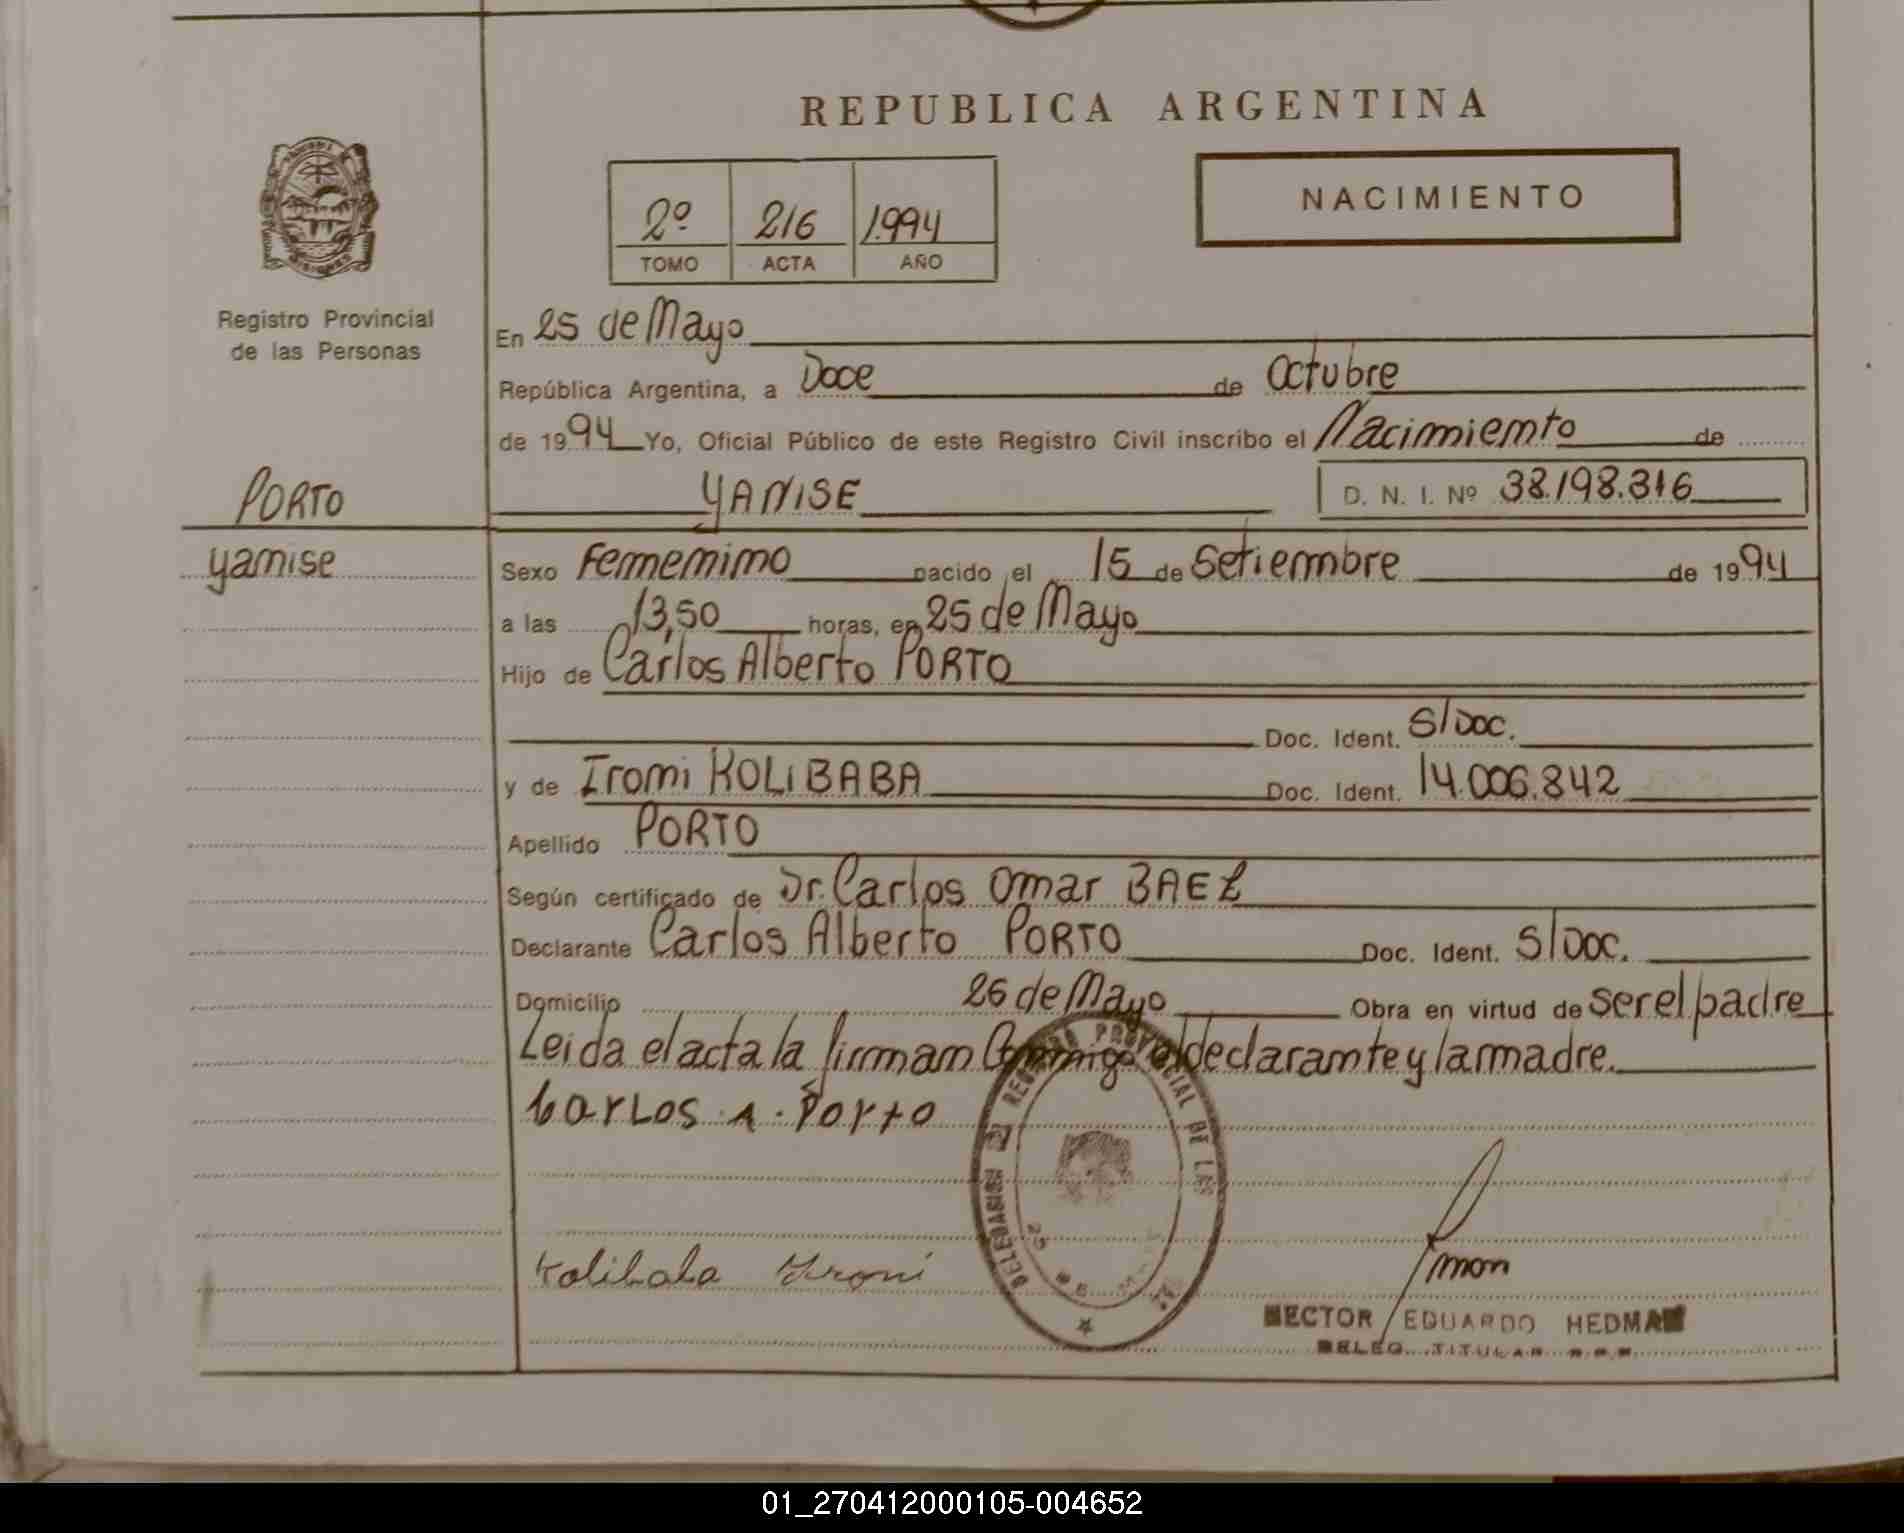 REPUBLICA ARGENTINA
NACIMIENTO
2º 216 1.994
TOMO ACTA AÑO
Registro Provincial
de las Personas
En 25 de Mayo
República Argentina, a Doce de Octubre
de 1994 Yo, Oficial Público de este Registro Civil inscribo el Nacimiento de
PORTO YANISE D. N. I. Nº 38.198.316
Yanise Sexo Femenino nacido el 15 de Setiembre de 1994
a las 13,50 horas, en 25 de Mayo
Hijo de Carlos Alberto PORTO
Doc. Ident. S/Doc.
y de Ironi KOLIBABA Doc. Ident. 14.006.842
Apellido PORTO
Según certificado de Dr. Carlos Omar BAEZ
Declarante Carlos Alberto PORTO Doc. Ident. S/Doc.
Domicilio 25 de Mayo Obra en virtud de ser el padre
Leida el acta la firman Conmigo el declarante y la madre.
Carlos A. Porto
DELEGACION REGISTRO PROVINCIAL DE LAS
Kolibaba Ironi
HECTOR EDUARDO HEDMAN
DELEG. TITULAR
01_270412000105-004652